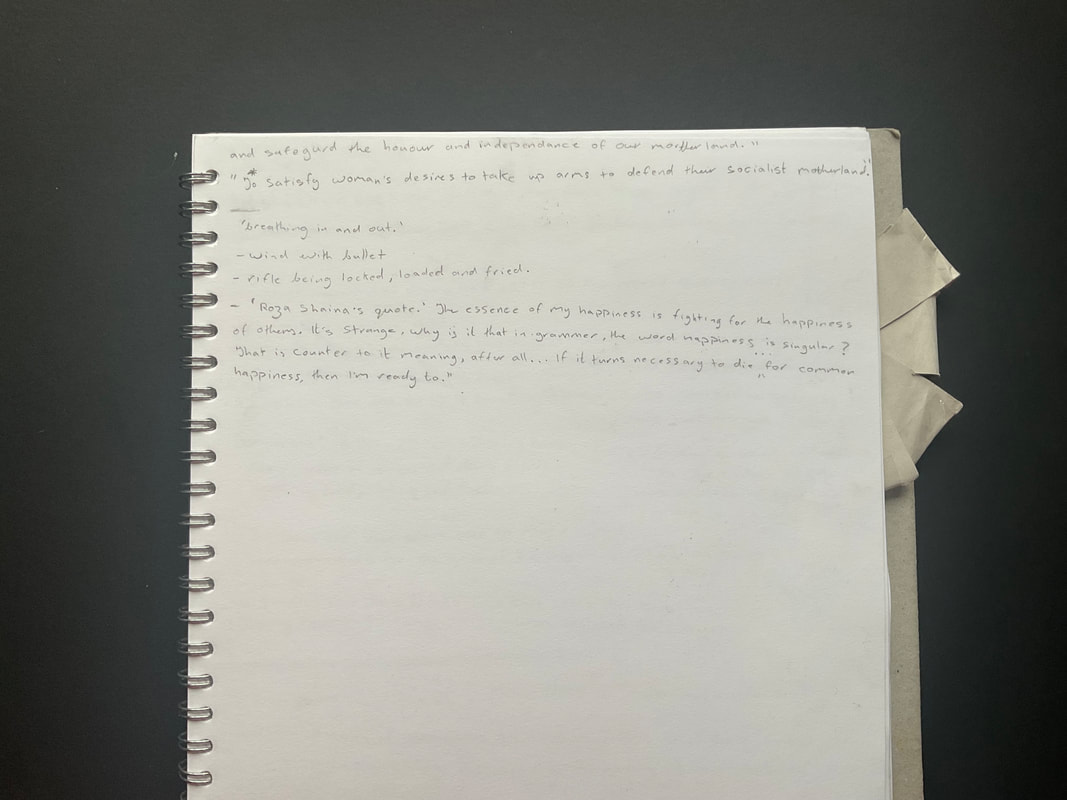 and safegurd the honour and independance of our morther land."
"To* satisfy woman's desires to take up arms to defend their socialist motherland."
'breathing in and out.'
- wind with bullet
- rifle being locked, loaded and fried.
- 'Roza Shaina's quote.' The essence of my happiness is fighting for the happiness
of others. It's strange, why is it that in grammer, the word happiness is singular?
That is counter to it meaning, after all... If it turns necessary to die for common
happiness, then I'm ready to."